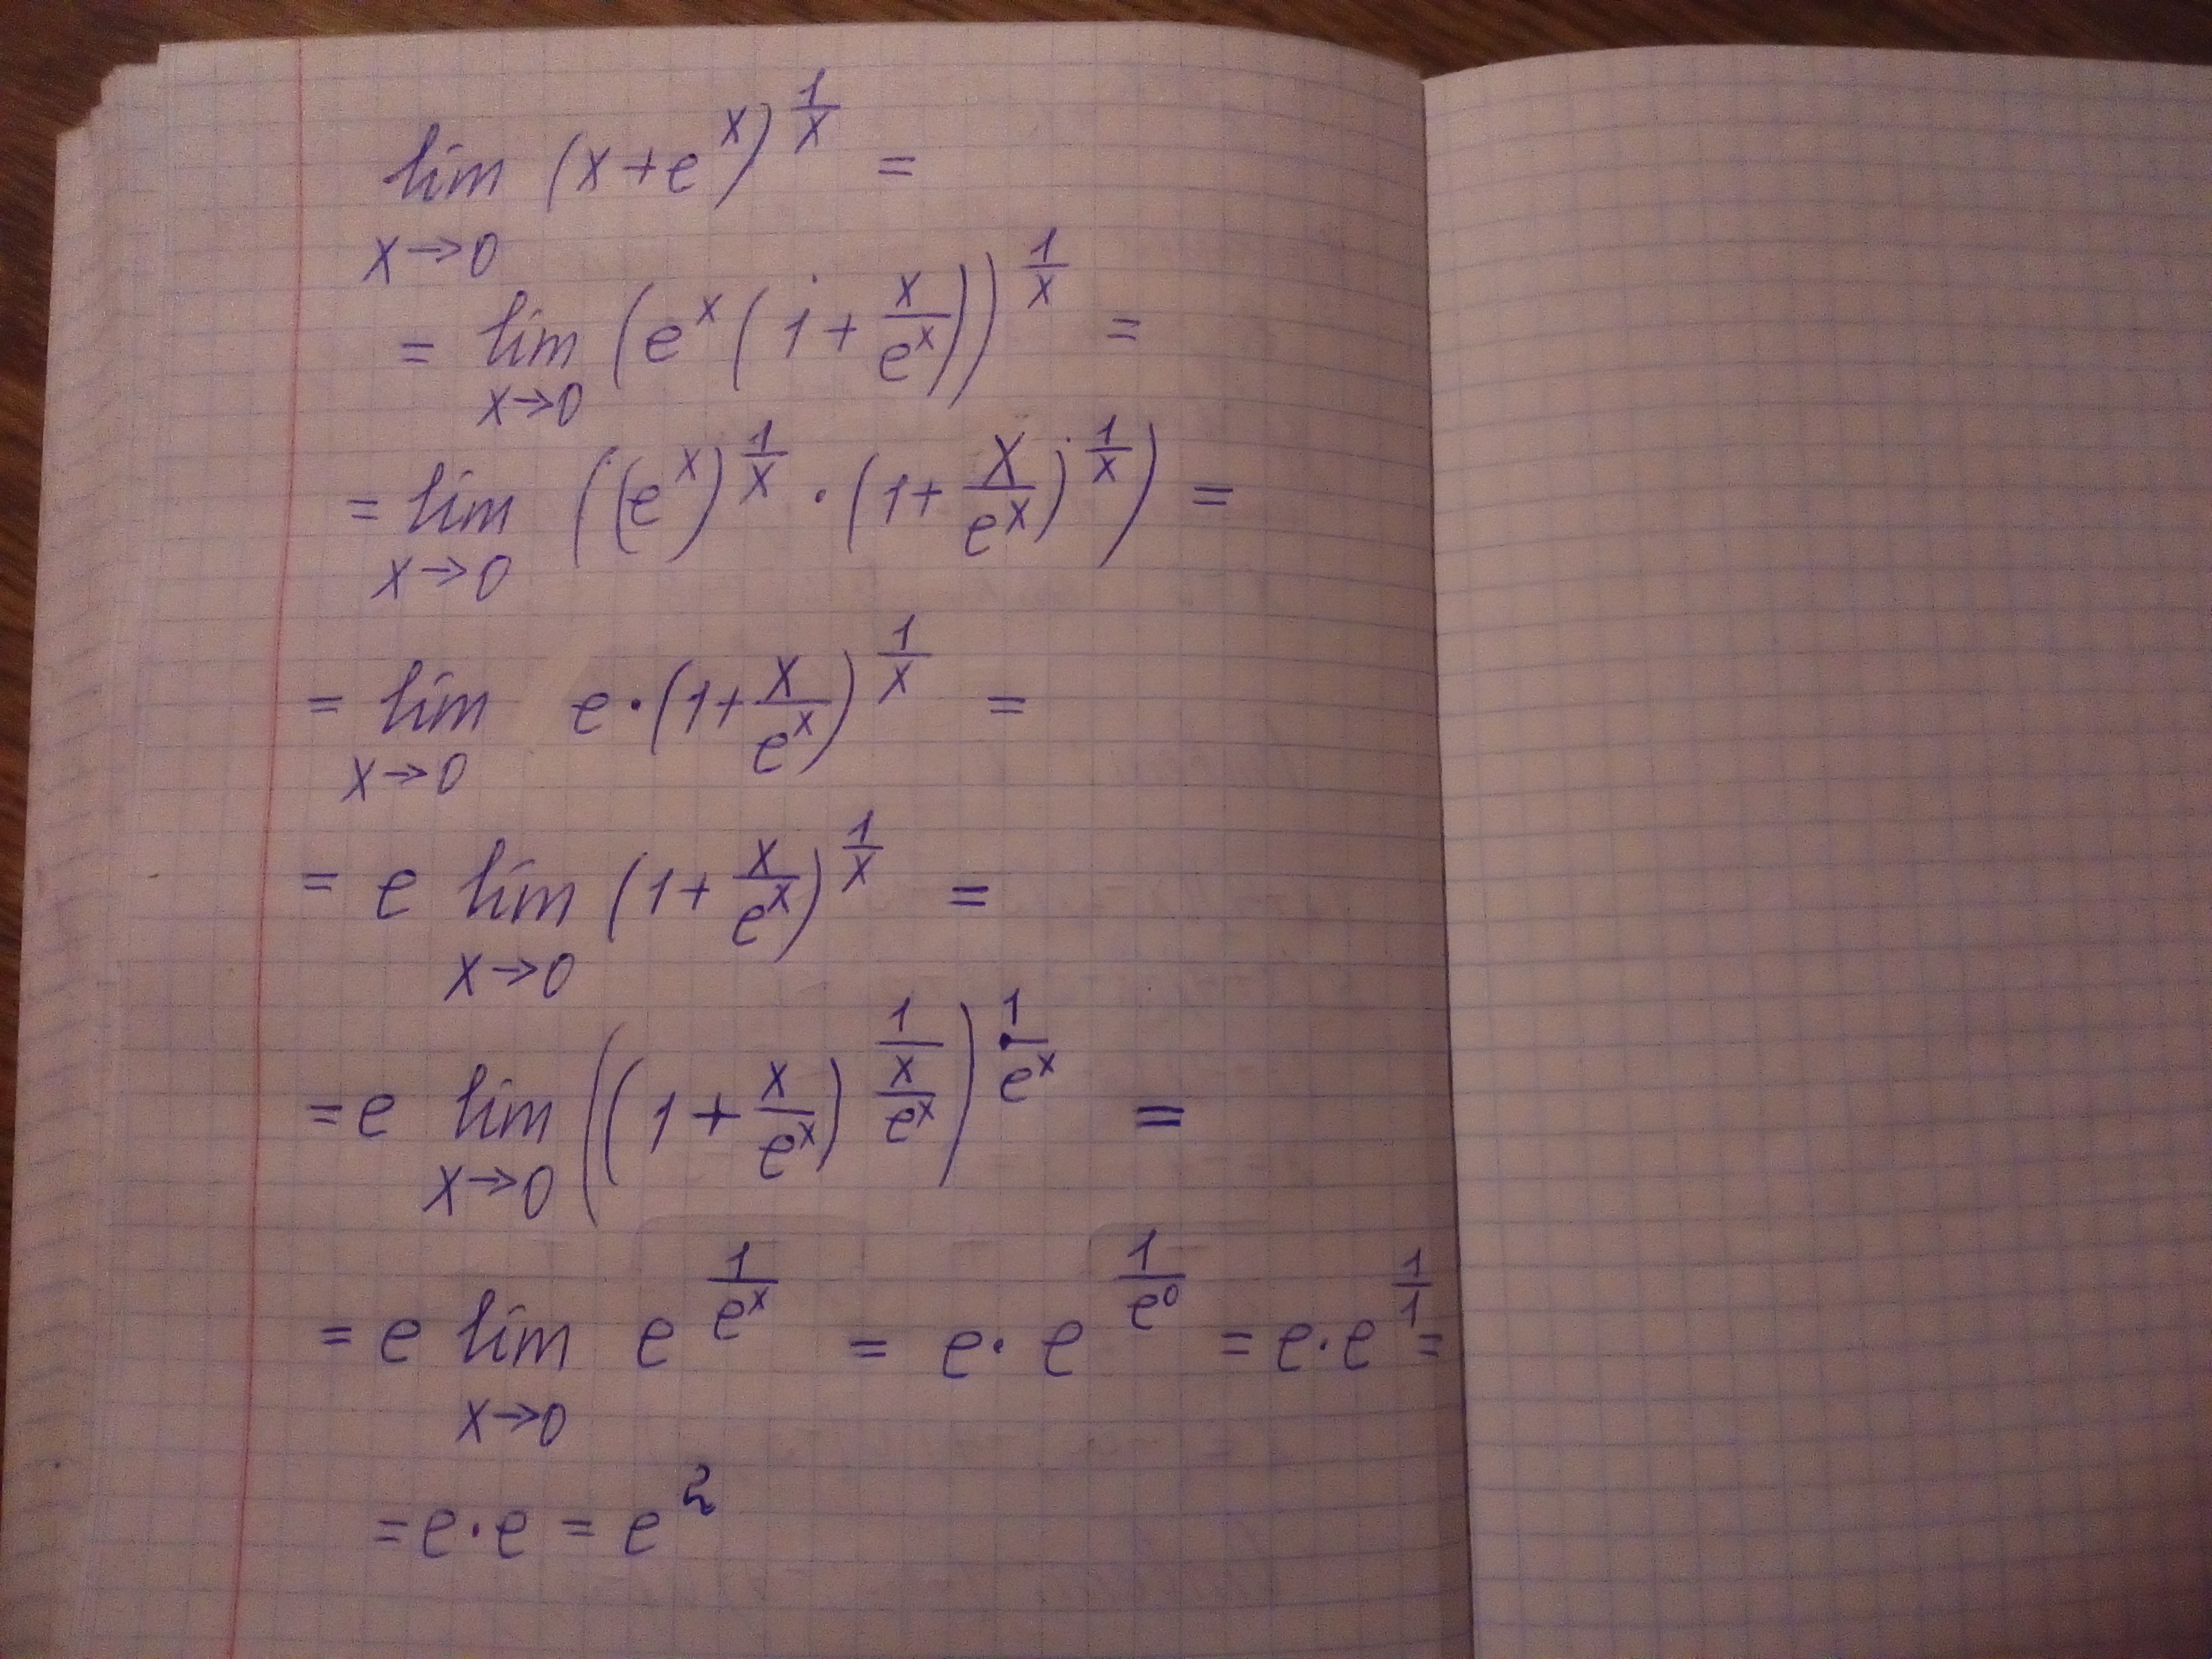 lim_{x→0} (x+e^x)^{1/x} =
= lim_{x→0} (e^x(1+x/e^x))^{1/x} =
= lim_{x→0} ((e^x)^{1/x} · (1+x/e^x)^{1/x}) =
= lim_{x→0} e·(1+x/e^x)^{1/x} =
= e lim_{x→0} (1+x/e^x)^{1/x} =
= e lim_{x→0} ((1+x/e^x)^{1/(x/e^x)})^{1/e^x} =
= e lim_{x→0} e^{1/e^x} = e·e^{1/e^0} = e·e^{1/1} =
= e·e = e^2